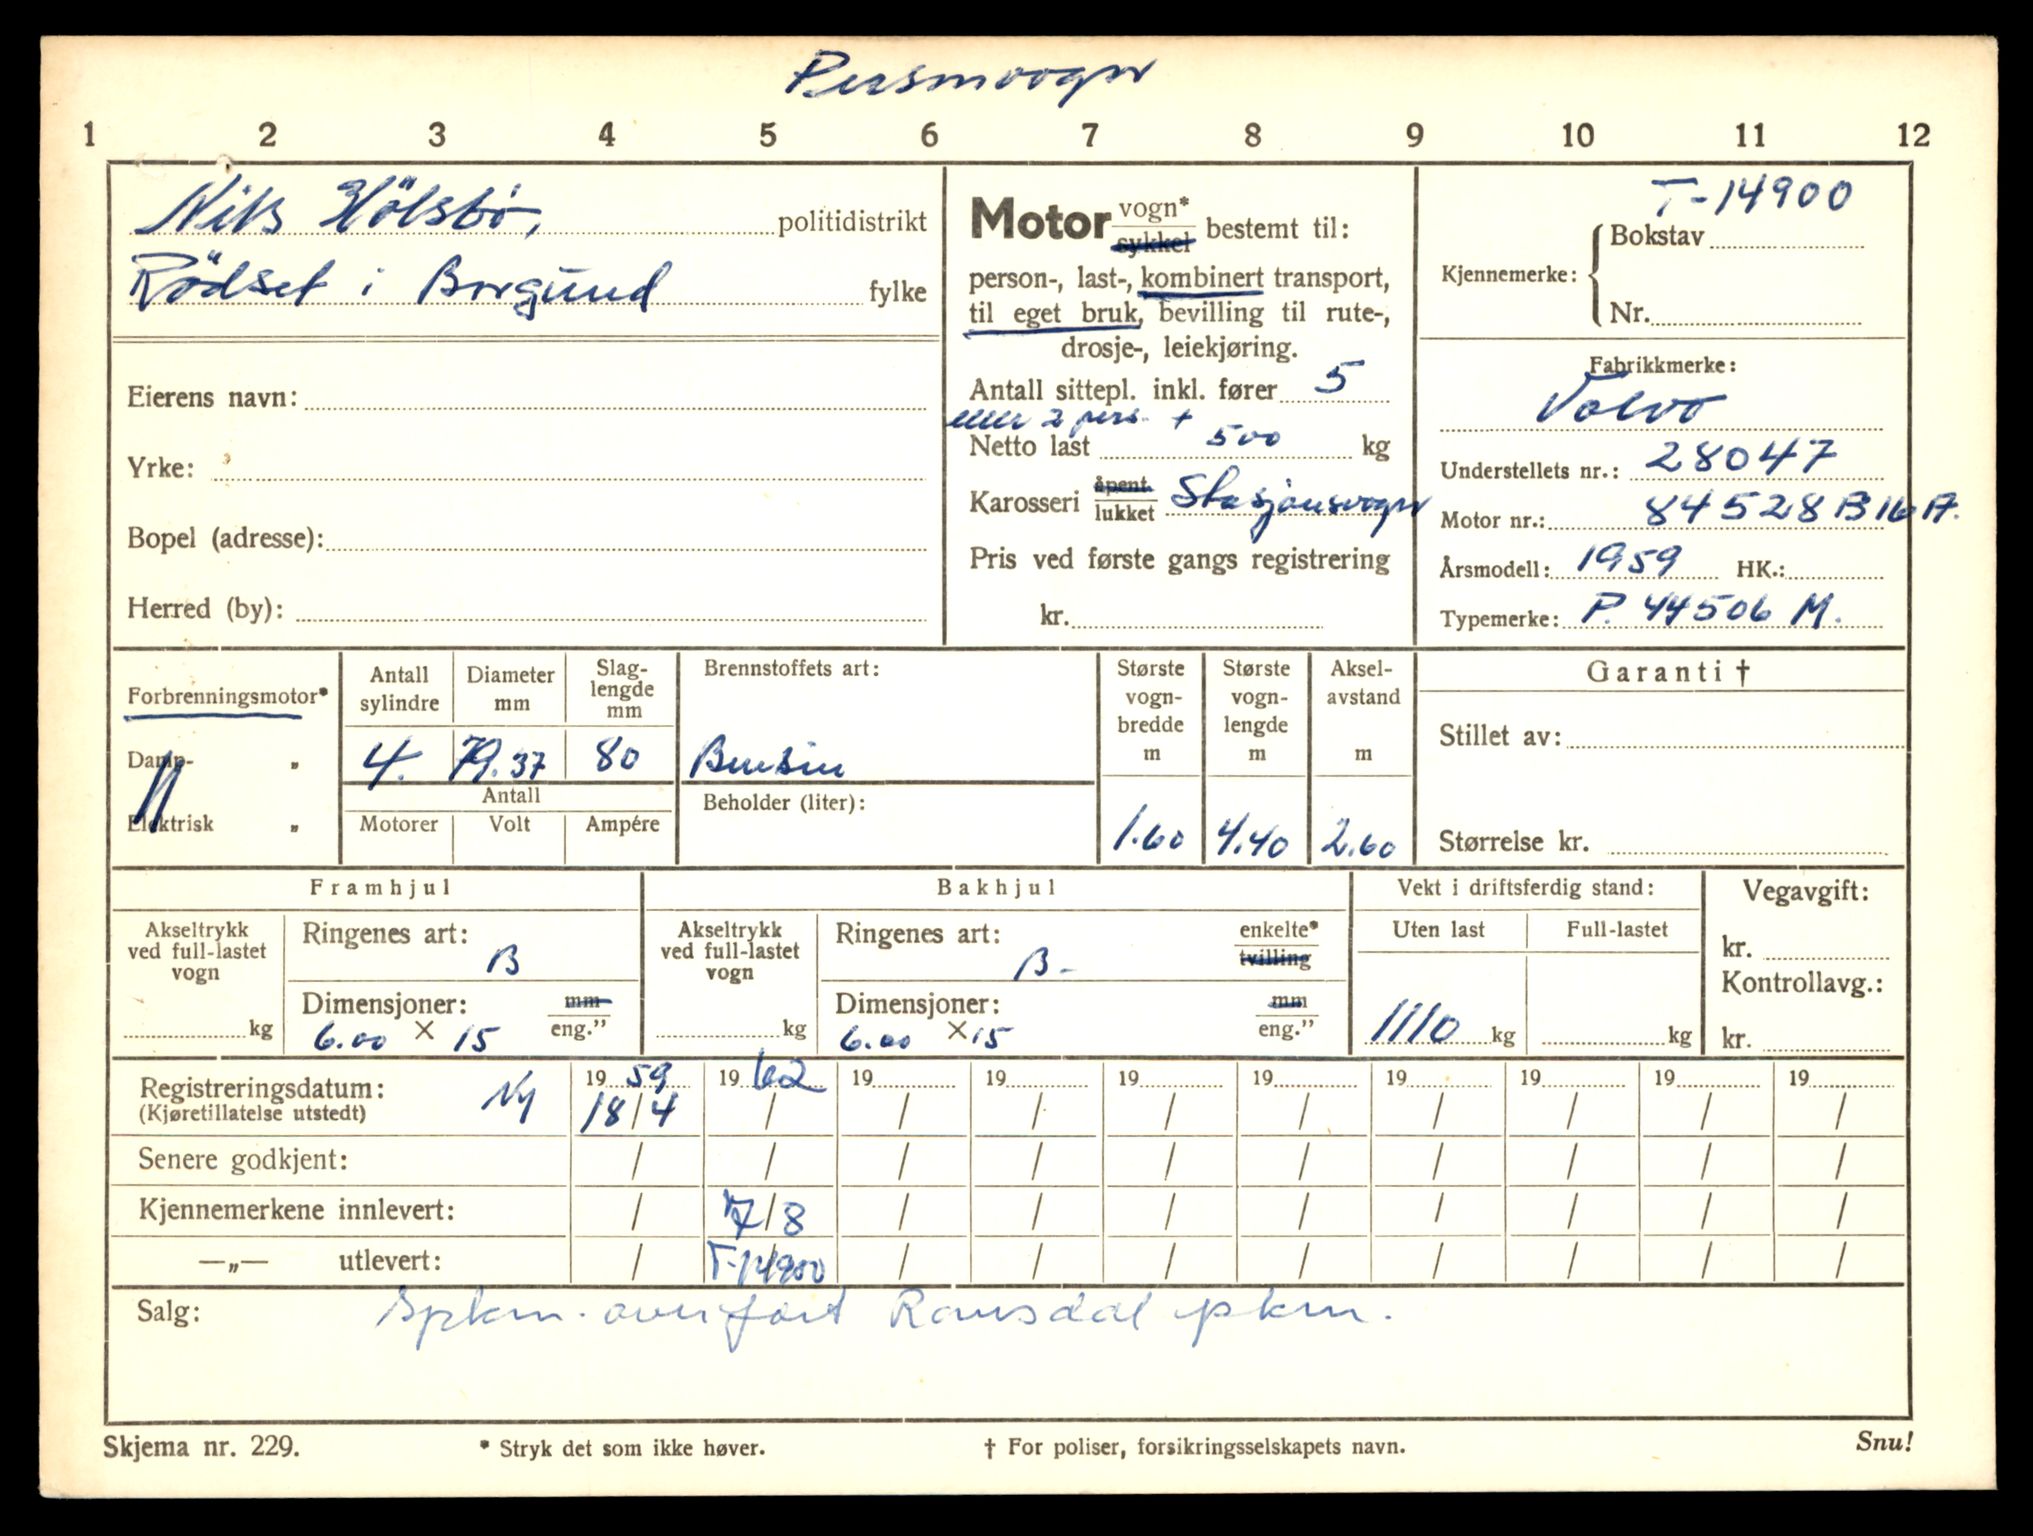 Personvogn
1 2 3 4 5 6 7 8 9 10 11 12
Nils Hölsbö, politidistrikt
Rödset i Borgund fylke
Eierens navn:
Yrke:
Bopel (adresse):
Herred (by):
Motor vogn* sykkel bestemt til:
person-, last-, kombinert transport,
til eget bruk, bevilling til rute-,
drosje-, leiekjøring.
Antall sittepl. inkl. fører 5
eller 2 pers. +
Netto last 500 kg
Karosseri åpent lukket Stasjonsvogn
Pris ved første gangs registrering
kr.
T-14900
Kjennemerke: Bokstav
Nr.
Fabrikkmerke:
Volvo
Understellets nr.: 28047
Motor nr.: 84528 B16 A.
Årsmodell: 1959 HK.:
Typemerke: P. 44506 M.
Forbrenningsmotor*
Damp- „
Elektrisk „
Antall sylindre Diameter mm Slag-lengde mm
4. 79.37 80
Antall
Motorer Volt Ampére
Brennstoffets art:
Bensin
Beholder (liter):
Største vogn-bredde m Største vogn-lengde m Aksel-avstand m
1.60 4.40 2.60
Garanti †
Stillet av:
Størrelse kr.
Framhjul
Akseltrykk
ved full-lastet
vogn
kg
Ringenes art:
B
Dimensjoner: mm
6.00 × 15 eng.”
Bakhjul
Akseltrykk
ved full-lastet
vogn
kg
Ringenes art: enkelte*
B- tvilling
Dimensjoner: mm
6.00 × 15 eng.”
Vekt i driftsferdig stand:
Uten last Full-lastet
1110 kg kg
Vegavgift:
kr.
Kontrollavg.:
kr.
Registreringsdatum: Ny 19 59 19 62 19 19 19 19 19 19 19 19
(Kjøretillatelse utstedt) 18/4 / / / / / / / / /
Senere godkjent: / / / / / / / / / /
Kjennemerkene innlevert: / 7/8 / / / / / / / /
—„— utlevert: / T-14900 / / / / / / / /
Salg: Spkm. overfört Romsdal pkm.
Skjema nr. 229.
* Stryk det som ikke høver.
† For poliser, forsikringsselskapets navn.
Snu!